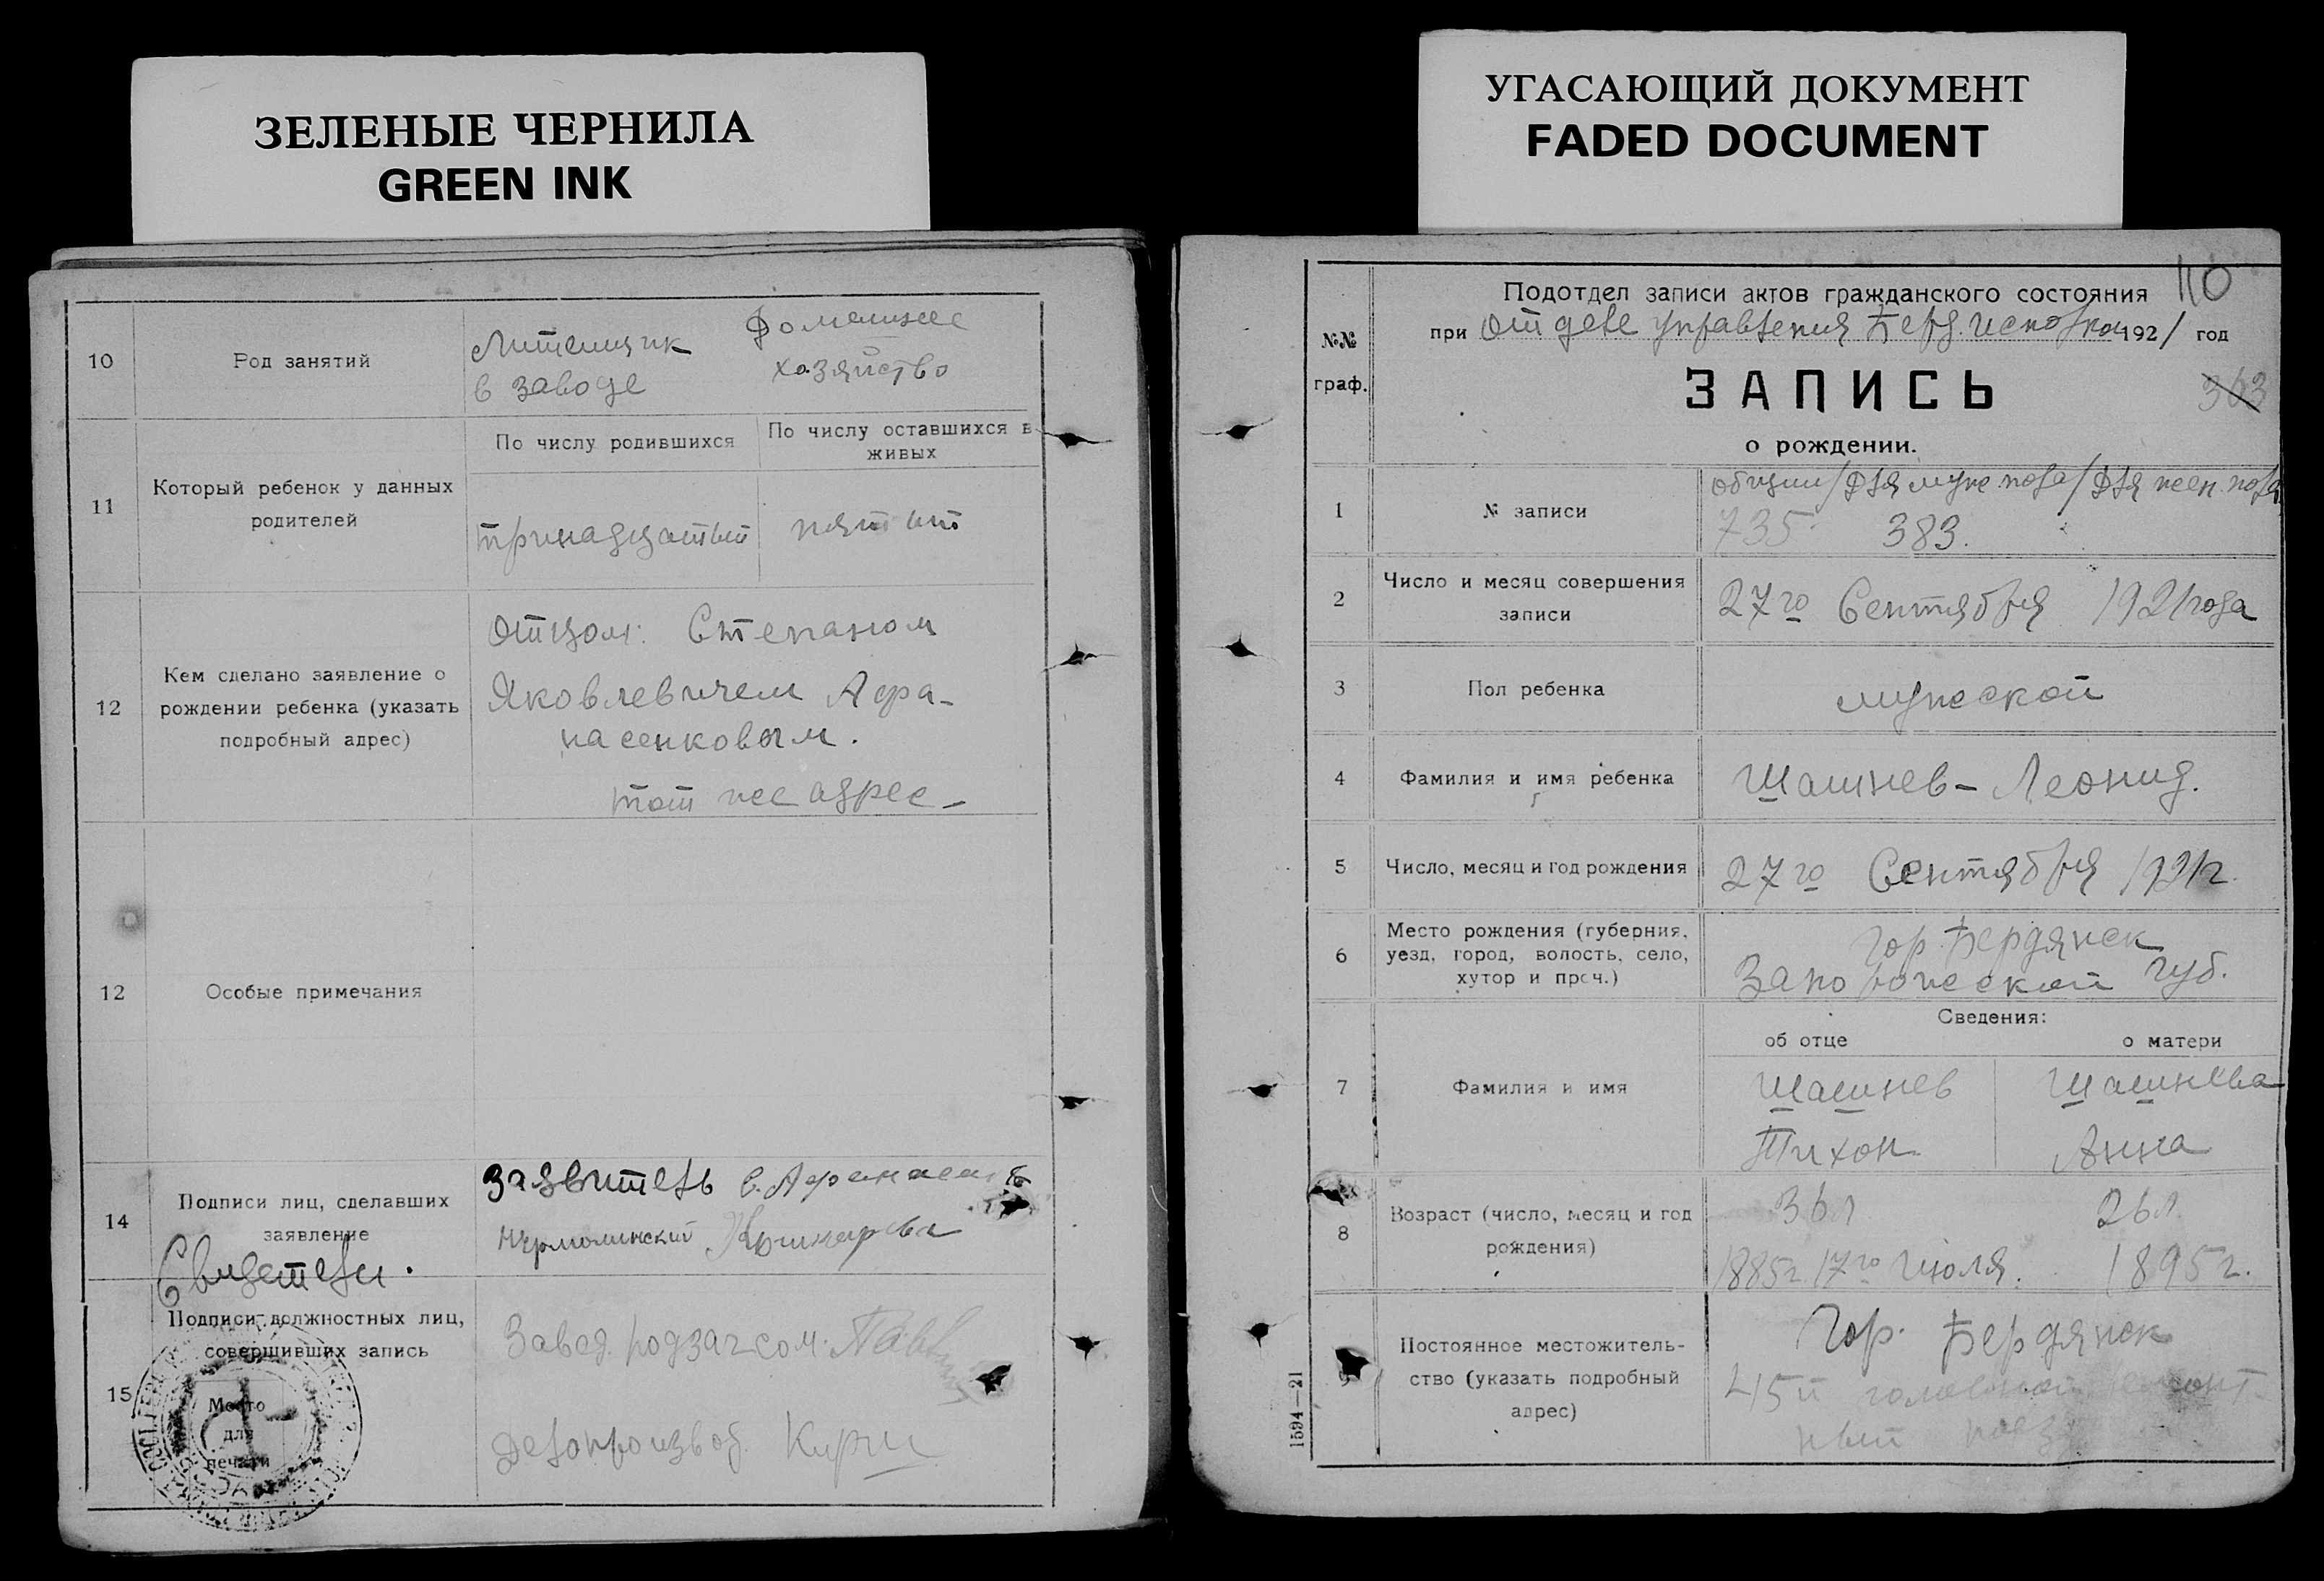 ЗЕЛЕНЫЕ ЧЕРНИЛА
GREEN INK
10
Род занятий
Литейщик
в заводе
Домашнее
хозяйство
11
Который ребенок у данных
родителей
По числу родившихся
По числу оставшихся в
живых
тринадцатый
пятый
12
Кем сделано заявление о
рождении ребенка (указать
подробный адрес)
Отцом: Степаном
Яковлевичем Афа-
насенковым.
тот же адрес
12
Особые примечания
14
Подписи лиц, сделавших
заявление
Свидетели.
Заявитель С.
15
Подписи должностных лиц,
совершивших запись
Место
для
печати
Завед. подзагсом
Делопроизвод. Кирш
УГАСАЮЩИЙ ДОКУМЕНТ
FADED DOCUMENT
110
№№
граф.
Подотдел записи актов гражданского состояния
при Отделе Управления Берд. Исполкома 1921 год
ЗАПИСЬ
363
о рождении.
1
№ записи
общий/для муж. пола/для жен. пола
735 383.
2
Число и месяц совершения
записи
27го Сентября 1921 года
3
Пол ребенка
мужской
4
Фамилия и имя ребенка
Шашнев - Леонид.
5
Число, месяц и год рождения
27го Сентября 1921г.
6
Место рождения (губерния,
уезд, город, волость, село,
хутор и проч.)
Гор. Бердянск
Запорожской губ.
Сведения:
об отце
о матери
7
Фамилия и имя
Шашнев
Тихон
Шашнева
Анна
8
Возраст (число, месяц и год
рождения)
36л
1885г 17го Июля.
26л
1895г.
9
Постоянное местожитель-
ство (указать подробный
адрес)
Гор. Бердянск
45й головной ремонт-
ный поезд
1594—21